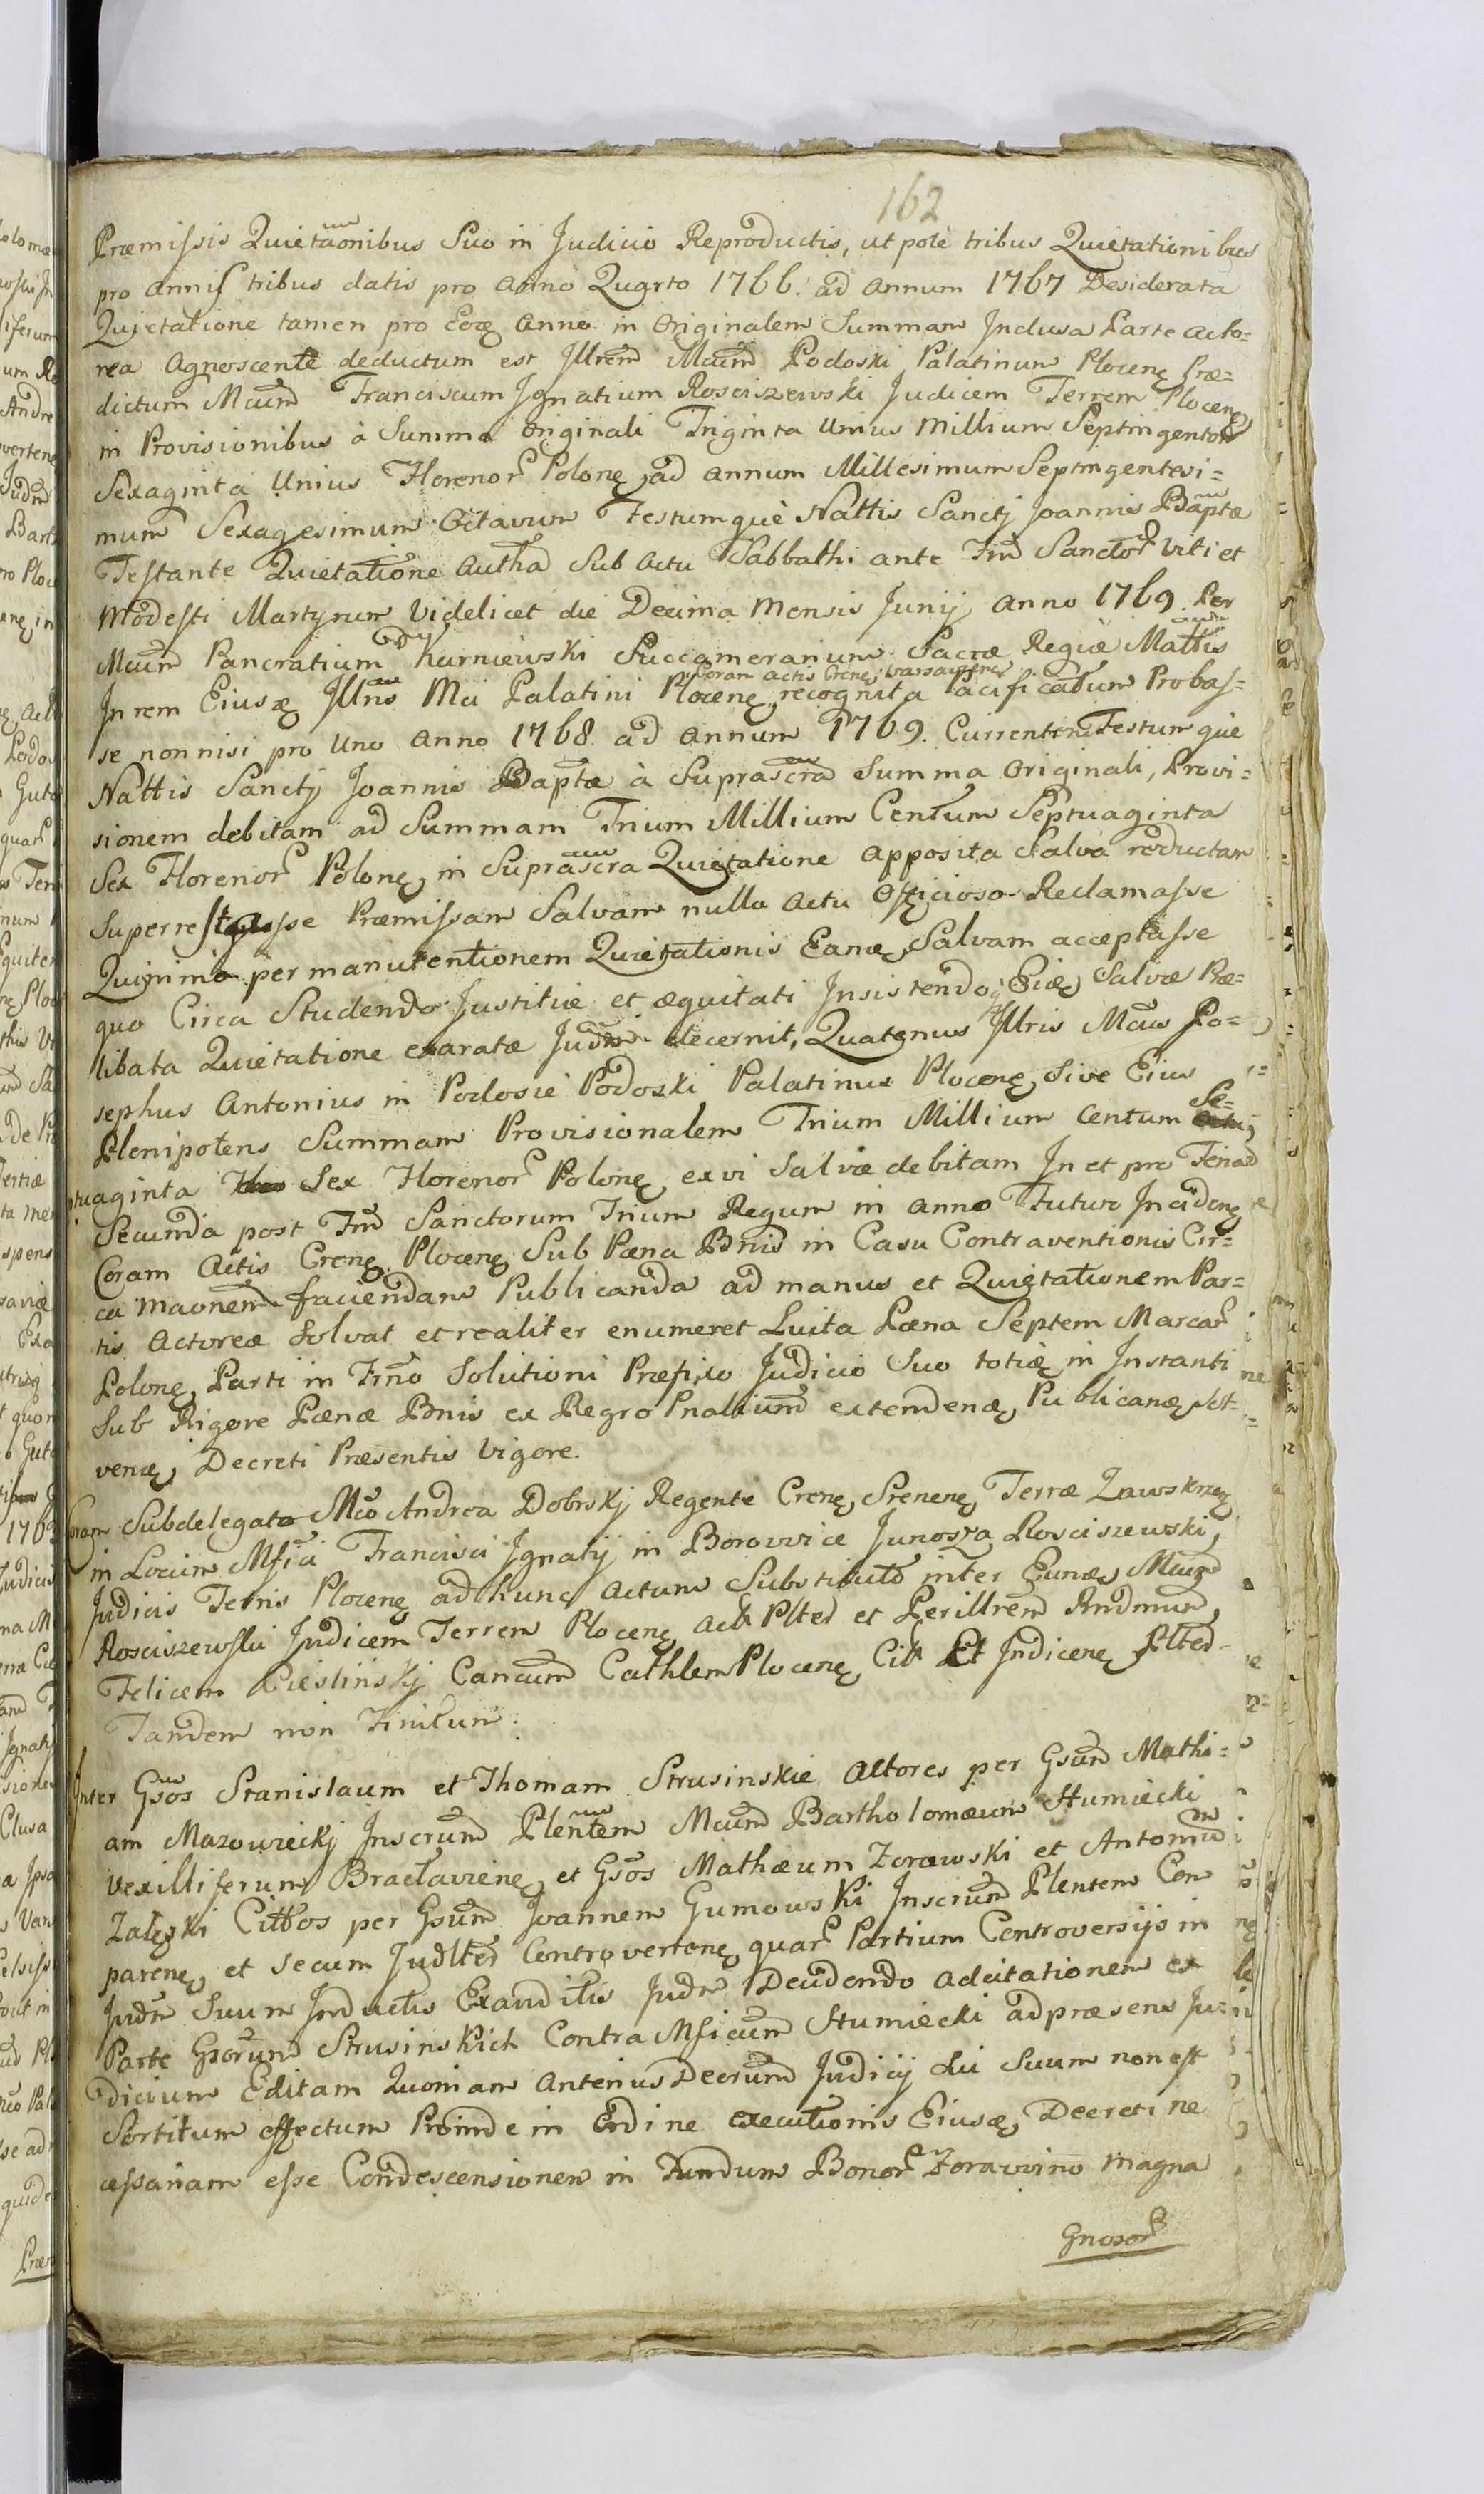 162
Præmissis Quietaonibus Suo in Judicio Reproductis, ut pote tribus Quietationibus
pro annis tribus datis pro anno Quarto 1766. ad annum 1767 Desiderata
Quietatione tamen pro Eoq anno in Originalem Summam Inclusa Parte Acto=
rea Agnoscente deductum est Illrem Mcum Podoski Palatinum Plocenę Præ=
dictum Mcum Franciscum Ignatium Rosciszewski Judicem Terrem Plocenę
in Provisionibus à Summa Originali Triginta Unius Millium Septingentor
Sexaginta Unius Florenor Polonę ad annum Millesimum Septingentesi=
mum Sexagesimum Octavum Festumquè Nattis Sanctj Joannis Baptæ
Testante Quietatione Autha Sub Actu Sabbathi ante Fm Sanctor Viti et
Modesti Martyrum Videlicet die Decima Mensis Junij Anno 1769. Per
Mcum Pancratium Kurniewski Succamerarium Sacræ Regiæ Mattis
Coram actis Crenę Varsavienę
In rem Eiusę Illris Mci Palatini Plocenę, recognita Pacificatum Probas=
se nonnisi pro Uno Anno 1768 ad annum 1769. Currentem Festumquè
Nattis Sanctj Joannis Baptæ à Suprascra Summa Originali, Provi=
sionem debitam ad Summam Trium Millium Centum Septuaginta
Sex Florenor Polonę, in Suprascra Quietatione apposita Salva reductam
Superrestasse Præmissam Salvam nullo Actu Officioso Reclamasse
Quinimo per manutentionem Quietationis Eanę Salvam acceptasse
quo Circa Studendo Justitiæ et æquitati Insistendoq Eię Salvæ Præ=
libata Quietatione exaratæ Judm decernit, Quatenus Illris Mcus Jo=
sephus Antonius in Podosie Podoski Palatinus Plocenę, Sive Eius
Plenipotens Summam Provisionalem Trium Millium Centum Se=
ptuaginta Sex Florenor Polonę ex vi Salvæ debitam In et pro Feria
Secunda post Fm Sanctorum Trium Regum in anno Futuro Incidenę
Coram Actis Crenę Plocenę Sub Pæna Bnis in Casu Contraventionis Cir=
ca maonem faciendam Publicanda ad manus et Quietationem Par=
tis Actoreæ Solvat et realiter enumeret Luita Pæna Septem Marcar
Polonę, Parti in Fmo Solutioni Præfixo Judicio Suo totię in Instanti
Sub Rigore Pænæ Bnis ex Regro Pnalium extendenę, Publicanę, Et
venię, Decreti Præsentis Vigore.
Coram Subdelegato Mco Andrea Dobrskj Regente Crenę, Srenenę, Terræ Zawskrzę
in Locum Mfici Francisci Ignatij in Borowice Junosza Rosciszewski,
Judicis Terris Plocenę ad hunc actum Substituto inter Eunę, Mcum
Rosciszewski Judicem Terrem Plocenę Act Plter et Perillrem Rndmum,
Felicem Cieslinskj Cancum Cathlem Plocenę, Cit Et Judicenę Plter
Tandem non Finitum.
Inter Gsos Stanislaum et Thomam Strusinskie Actores per Gsum Mathi=
am Mazowieckj Inscrum Plentem Mcum Bartholomæum Humiecki
Vexilliferum Braclavienę, et Gsos Mathæum Zorawski et Antonium
Zalęski Cittos per Gsum Joannem Gumowski Inscrum Plentem Com
parenę, et secum Judlter Controvertenę, quar Partium Controversijs in
Judm Suum Inductis Exauditis Judm Decidendo adcitationem ex
Parte Gsorum Strusinskich Contra Mficum Humiecki ad præsens Ju=
dicium Editam Quoniam anterius Decrum Judicij Sui Suum non est
Sortitum effectum Proinde in Ordine executionis Eiusę, Decreti ne
cessariam esse Condescensionem in Fundum Bonor Zorawino magna
Gnosor